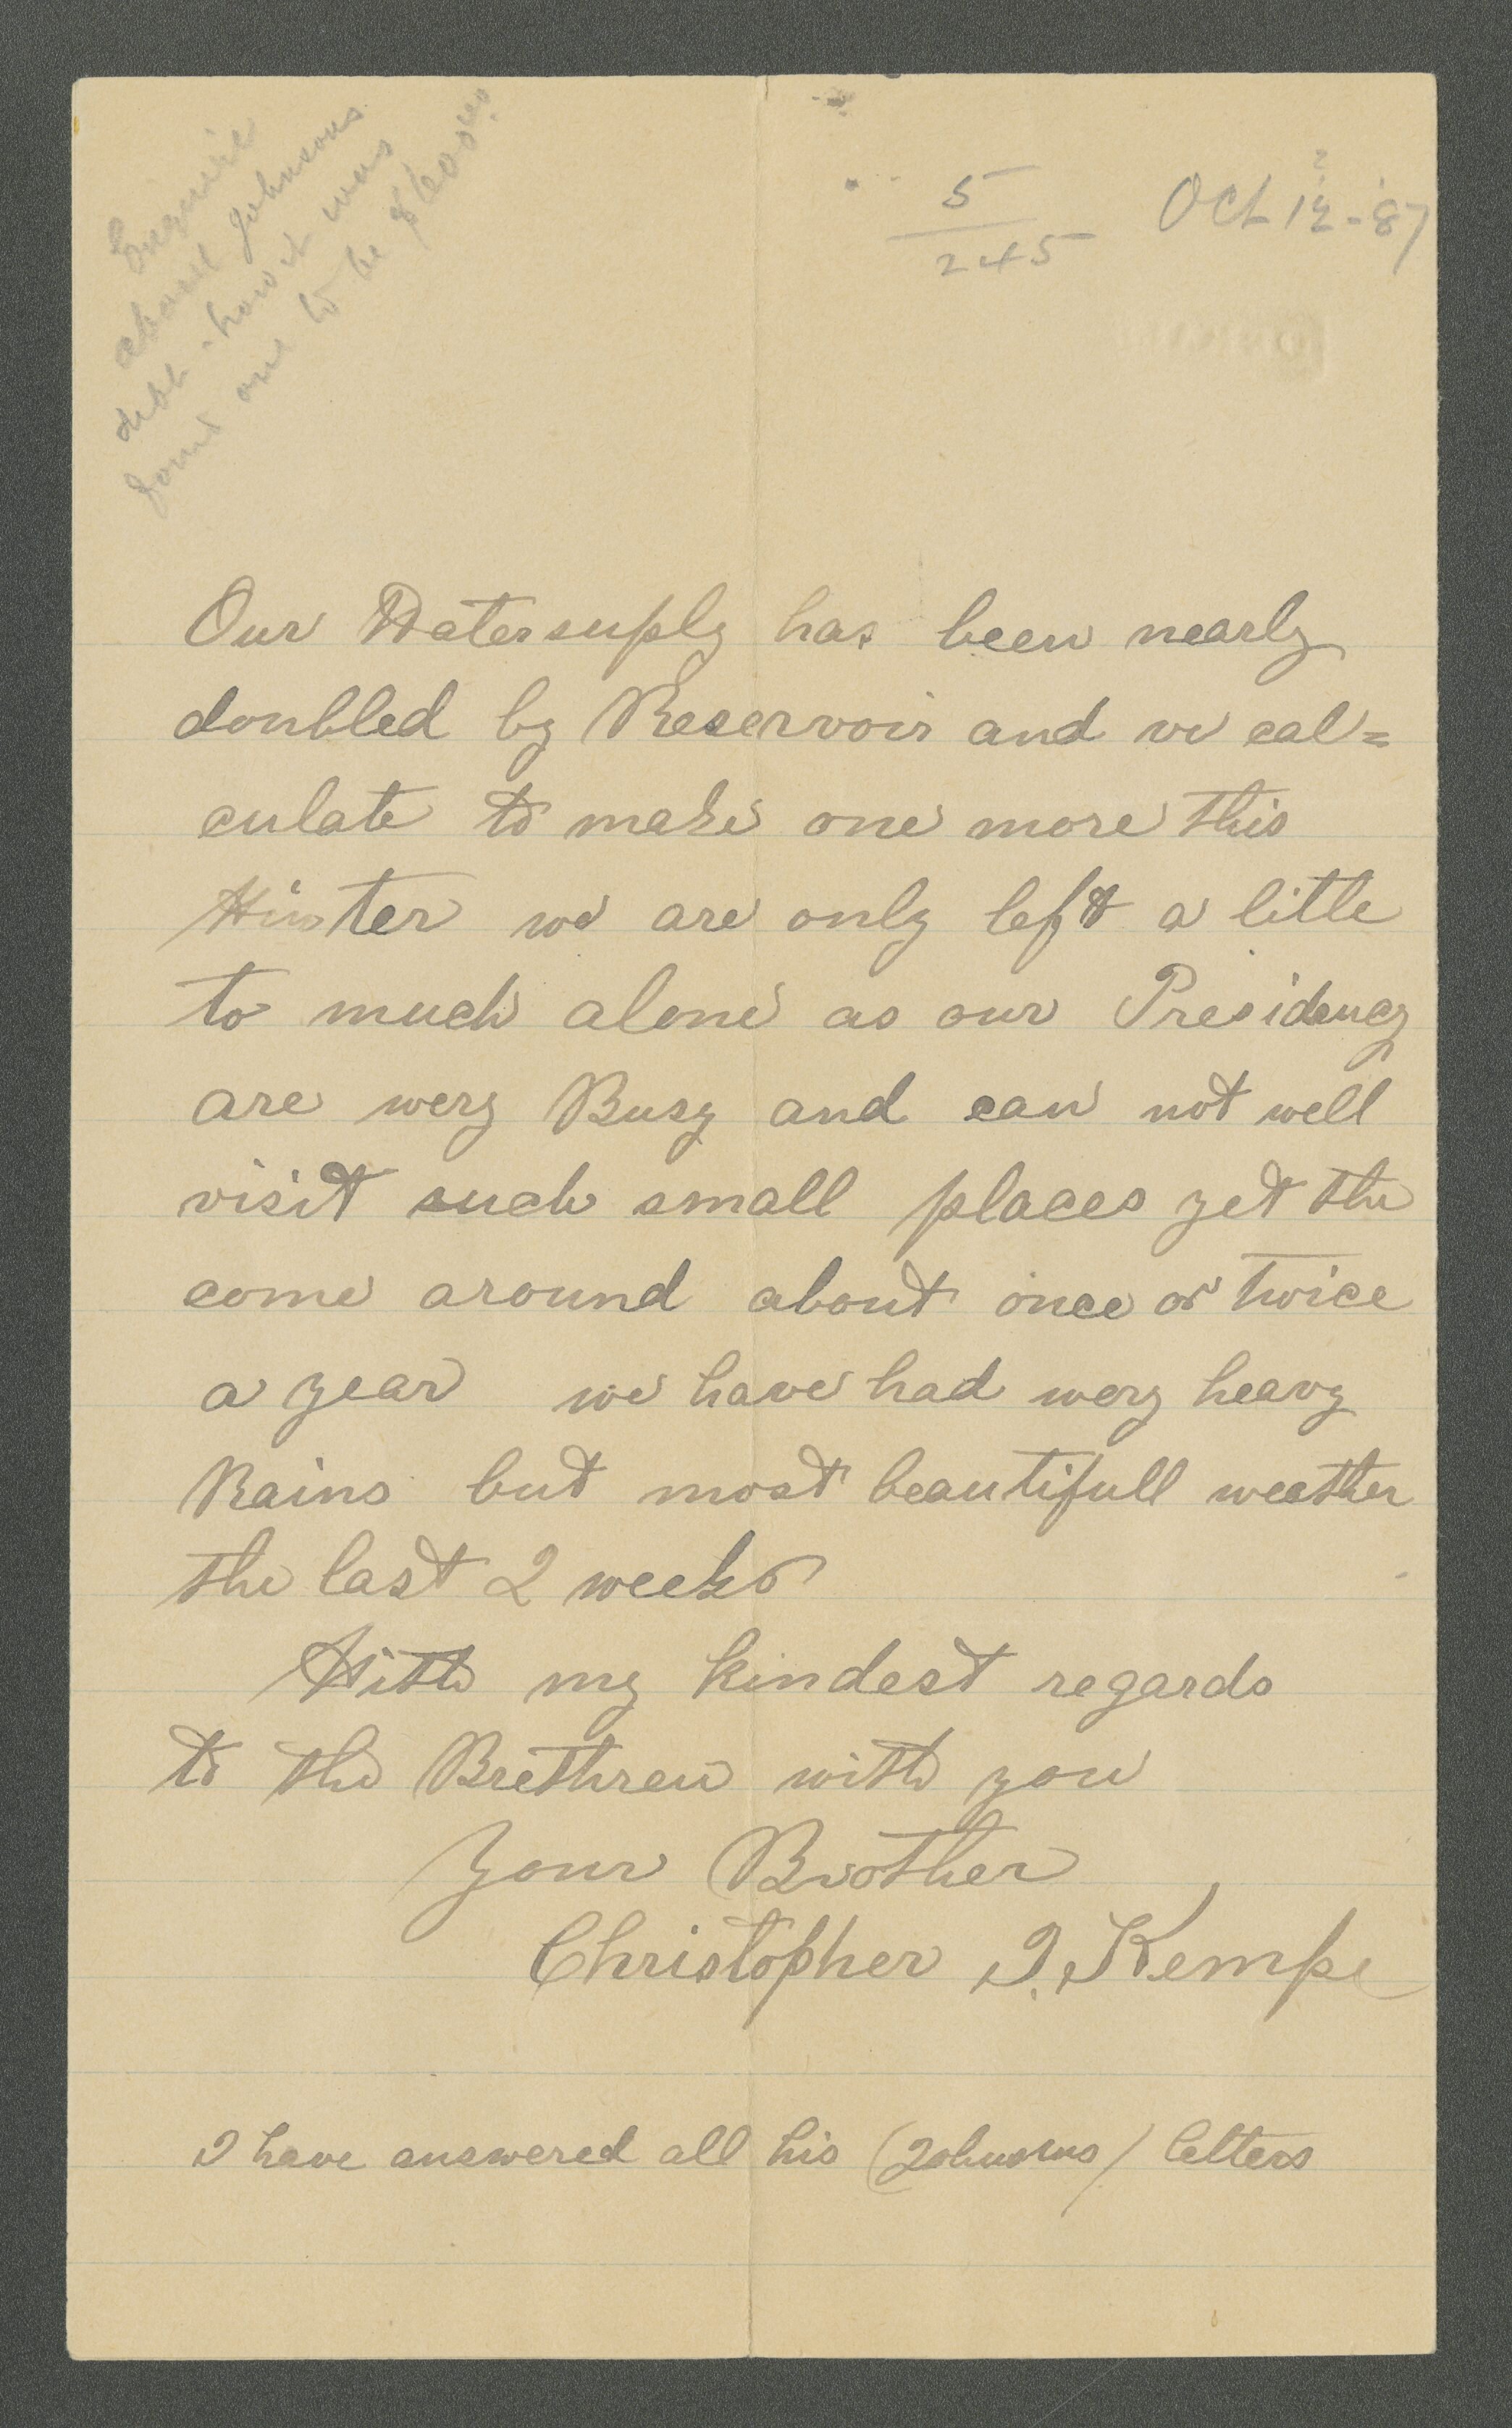 Enquire
about Johnsons
debt - how it was
some one to be
5
245
Oct 12 - 87
Our Watersuply has been nearly
doubled by Reservoir and we cal=
culate to make one more this
Winter we are only left a little
to much alone as our Presidency
are wery Busy and can not well
visit such small places yet the
come around about once or twice
a year we have had wery heavy
Rains but most beautifull weather
the last 2 weeks
With my kindest regards
to the Brethren with you
Your Brother
Christopher I. Kempe
I have answered all his (Johnsons) letters